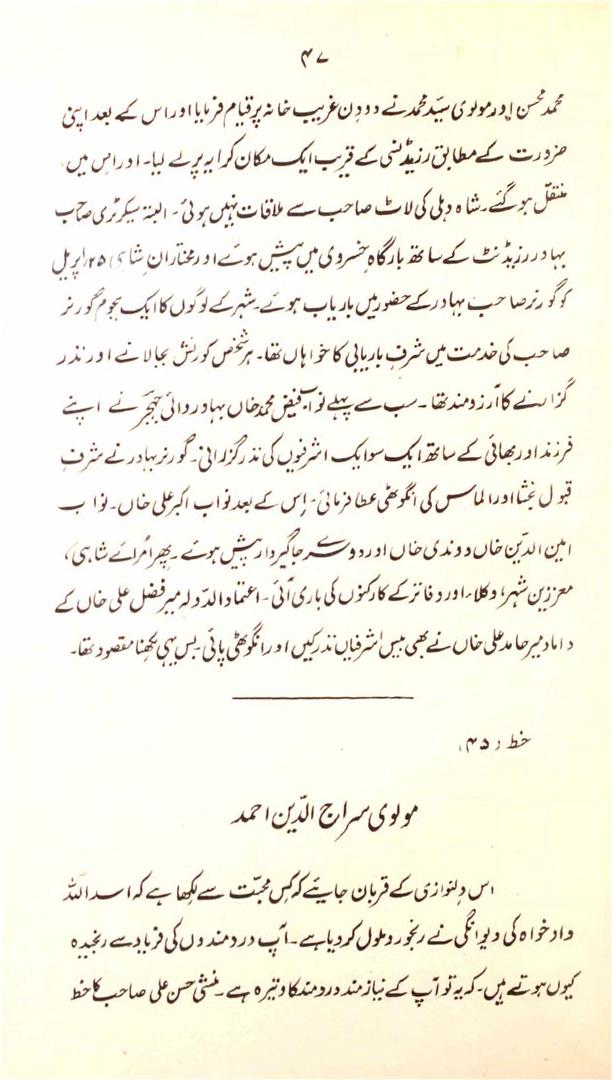 ۴۷
محمد محسن اور مولوی سیّد محمد نے دو دن غریب خانہ پر قیام فرمایا اور اس کے بعد اپنی
ضرورت کے مطابق رزیڈنسی کے قریب ایک مکان کرایہ پر لے لیا۔ اور اس میں
منتقل ہو گئے۔ شاہ دہلی کی لاٹ صاحب سے ملاقات نہیں ہوئی۔ البتہ سیکرٹری صاحب
بہادر رزیڈنٹ کے ساتھ بارگاہِ خسروی میں پیش ہوئے اور مختارانِ شاہی ۲۵ اپریل
کو گورنر صاحب بہادر کے حضور میں باریاب ہوئے۔ شہر کے لوگوں کا ایک ہجوم گورنر
صاحب کی خدمت میں شرفِ باریابی کا خواہاں تھا۔ ہر شخص کورنش بجا لانے اور نذر
گزارنے کا آرزومند تھا۔ سب سے پہلے نواب فیض محمد خاں بہادر والئی جھجر نے اپنے
فرزند اور بھائی کے ساتھ ایک سو ایک اشرفیوں کی نذر گزرانی۔ گورنر بہادر نے شرفِ
قبول بخشا اور الماس کی انگوٹھی عطا فرمائی۔ اِس کے بعد نواب اکبر علی خاں۔ نواب
امین الدّین خاں دوندی خاں اور دوسرے جاگیردار پیش ہوئے۔ پھر اُمرائے شاہی،
معززین شہر، وکلاء اور دفاتر کے کارکنوں کی باری آئی۔ اعتماد الدّولہ میر فضل علی خاں کے
داماد میر حامد علی خاں نے بھی بیس اشرفیاں نذر کیں اور انگوٹھی پائی۔ بس یہی لکھنا مقصود تھا۔
خط (۴۵)
مولوی سراج الدّین احمد
اس دلنوازی کے قربان جائیے کہ کس محبّت سے لکھا ہے کہ اسد اللہ
دادخواہ کی دیوانگی نے رنجور و ملول کر دیا ہے۔ آپ دردمندوں کی فریاد سے رنجیدہ
کیوں ہوتے ہیں۔ کہ یہ تو آپ کے نیازمند دردمند کا وتیرہ ہے۔ منشی حسن علی صاحب کا خط